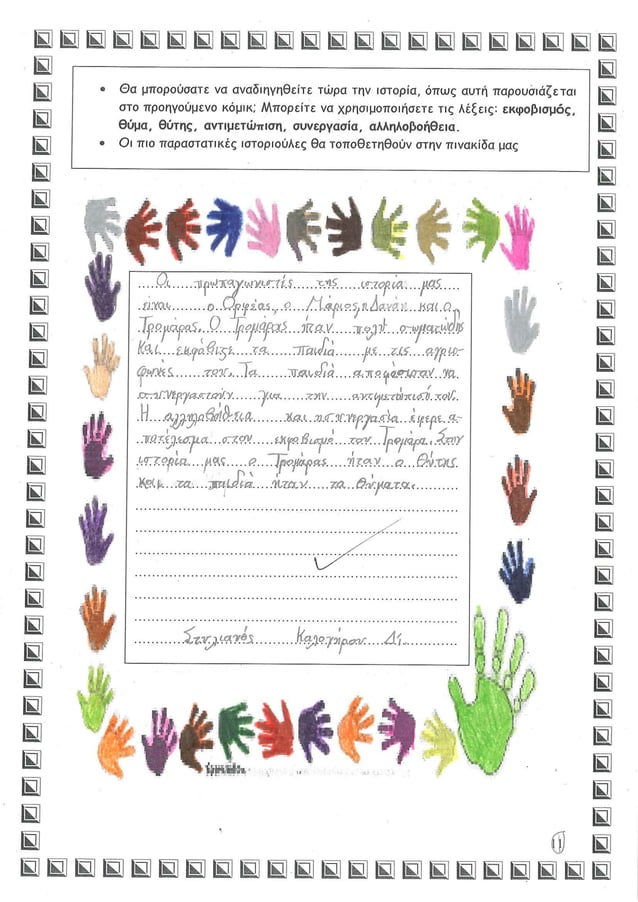 • Θα μπορούσατε να αναδιηγηθείτε τώρα την ιστορία, όπως αυτή παρουσιάζεται
στο προηγούμενο κόμικ; Μπορείτε να χρησιμοποιήσετε τις λέξεις: εκφοβισμός,
θύμα, θύτης, αντιμετώπιση, συνεργασία, αλληλοβοήθεια.
• Οι πιο παραστατικές ιστοριούλες θα τοποθετηθούν στην πινακίδα μας
Οι πρωταγωνιστές της ιστορία μας
είναι ο Ορφέας, ο Μάριος, η Δανάη και ο
Τρομάρας. Ο Τρομάρας ήταν πολύ σωματώδης
και εκφόβιζε τα παιδιά με τις αγριο-
φωνές του. Τα παιδιά αποφάσισαν να
συνεργαστούν για την αντιμετώπισή του.
Η αλληλοβοήθεια και η συνεργασία έφερε α-
ποτέλεσμα στον εκφοβισμό του Τρομάρα. Στην
ιστορία μας ο Τρομάρας ήταν ο θύτης
και τα παιδιά ήταν τα θύματα.
Στυλιανός Καλογήρου Δ
11